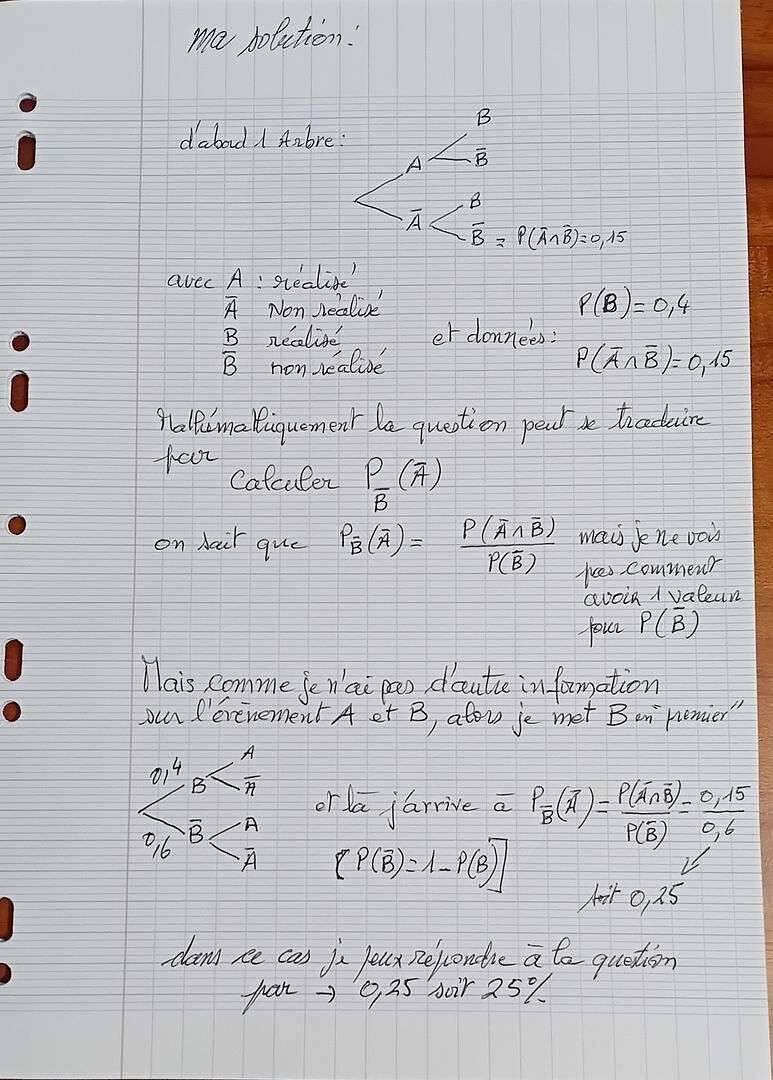 ma solution:
d'abord 1 Arbre:
B
A
B̅
B
A̅
B̅ = P(A̅∩B̅)=0,15
avec A : réalisé
A̅ Non réalisé
B réalisé
B̅ non réalisé
et données:
P(B)=0,4
P(A̅∩B̅)=0,15
Mathématiquement la question peut se traduire
par
Calculer P_B̅(A̅)
on sait que P_B̅(A̅) = P(A̅∩B̅)/P(B̅) mais je ne vois
pas comment
avoir 1 valeur
pour P(B̅)
Mais comme je n'ai pas d'autre information
sur l'évènement A et B, alors je met B en "premier"
0,4 B A
A̅
0,6 B̅ A
A̅
et là j'arrive à P_B̅(A̅) = P(A̅∩B̅)/P(B̅) = 0,15/0,6
[P(B̅)=1-P(B)]
soit 0,25
dans ce cas je peux répondre à la question
par → 0,25 soit 25%